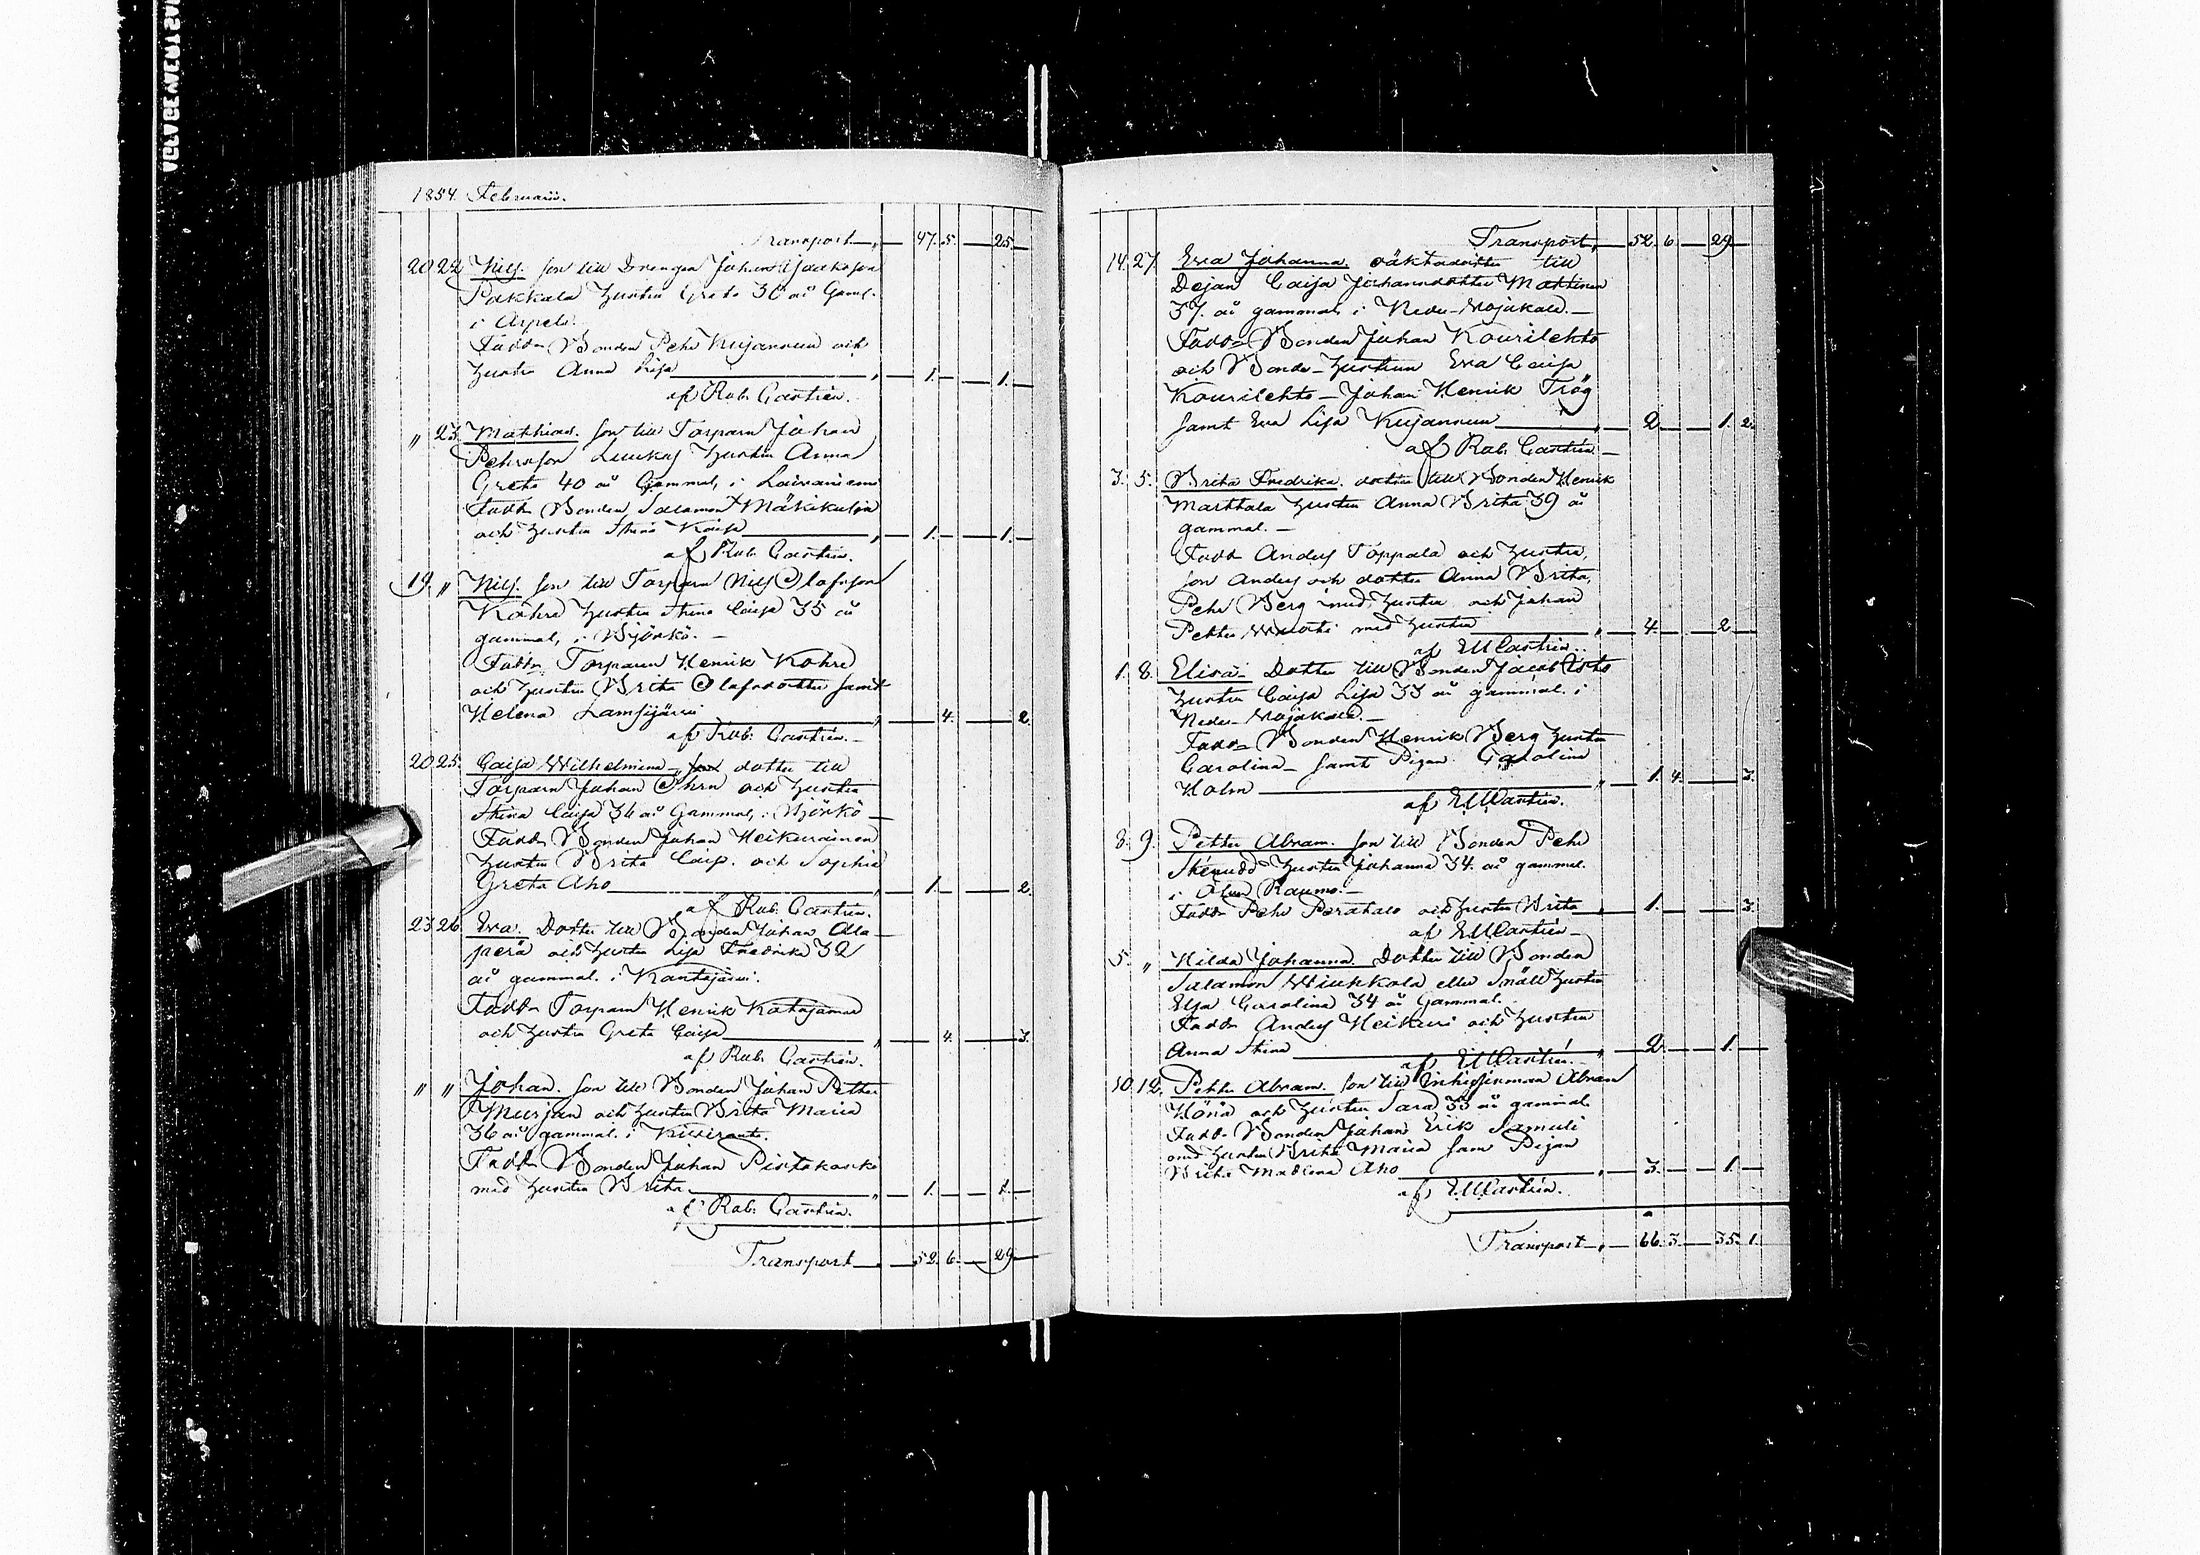 1854 Februarii.
Transport 47. 5. 25.
20 22 Nils. son till Drengen Johan Isacksson
Pakkala hustru Greta 36 år Gaml.
i Arpela.
Fadd. Bonden Pehr Kujanneun och
hustru Anna Lisa 1. 1.
af Rab. Castrén.
" 23. Mathias. son till Torparn Johan
Pehrsson Luukas hustru Anna
Greta 40 år Gammal, i Laivaniemi
Fadd. Bonden Salamon Mäkikulja
och hustru Stina Kaisa 1. 1.
af Rab. Castrén.
19. " Nils. son till Torparn Nils Olofsson
Kohre hustru Stina Caisa 35 år
gammal, i Björkö.
Fadd. Torparen Henrik Kohre
och hustru Brita Olafsdotter samt
Helena Lamsijärvi 4. 2.
af Rab. Castrén.
20 25. Caisa Wilhelmina dotter till
Torparn Johan Öhrn och hustru
Stina Caisa 36 år Gammal, i Björkö
Fadd. Bonden Johan Heikurainen
hustru Brita Caisa. och Sophia
Greta Aho 1. 2.
af Rab. Castrén.
23 26 Eva. Dotter till Bonden Johan Alla-
perä och hustru Lisa Fredrika 32
år gammal. i Kantojärvi.
Fadd. Torparn Henrik Katajamaa
och hustru Greta Caisa 4. 3.
af Rab. Castrén.
" " Johan. son till Bonden Johan Petter
Mursjun och hustru Brita Maria
36 år gammal. i Kiviranta.
Fadd. Bonden Johan Pirtakoski
med hustru Brita. 1. 1.
af Rab. Castrén.
Transport 52. 6. 29.
Transport 52. 6. 29
14. 27. Eva Johanna. oäktadotter till
Dejan Caisa Johansdotter Mattinen
37. år gammal, i Neder-Vojakala.
Fadd. Bonden Johan Kourilehto
och Bonde-hustrun Eva Caisa
Kourilehto Johan Henrik Trög
samt Eva Lisa Kujanneun 2. 1. 2.
af Rab. Castrén.
3. 5. Brita Fredrika. dotter till Bonden Henrik
Marttala hustru Anna Brita 39 år
gammal.
Fadd. Anders Toppala och hustru,
son Anders och dotter Anna Brita,
Pehr Berg med hustru och Johan
Petter med hustru 4. 2
af EMCastrén.
1. 8. Elisa Dotter till Bonden Jacob
hustru Caisa Lisa 33 år gammal. i
Neder-Vojakala.
Fadd. Bonden Henrik Berg hustru
Carolina samt Pigan Carolina
Holm 1. 4. 3.
af EMCastrén.
8. 9. Petter Abram. son till Bonden Pehr
hustru Johanna 34. år gammal.
i Raumo.
Fadd. Pehr Perähalo och hustru Brita 1. 3.
af EMCastrén
5. " Hilda Johanna. Dotter till Bonden
Salamon eller Snäll hustru
Elsa Carolina 34 år Gammal.
Fadd. Anders Heikuri och hustru
Anna Stina 2. 1.
af EMCastrén.
10. 12. Petter Abram. son till Inhysinman Abram
Hörä och hustru Sara 33 år gammal.
Fadd. Bonden Johan Erik Samuli
med hustru Brita Maria sam Pigan
Brita Madlena Aho 3. 1.
af EMCastrén.
Transport 66. 3. 35. 1.